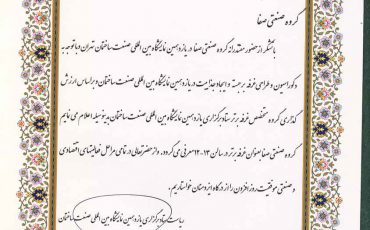 گروه صنعتی صفا
با تشکر از حضور مقتدرانه گروه صنعتی صفا در یازدهمین نمایشگاه بین المللی صنعت ساختمان تهران و با توجه به
دکوراسیون و طراحی غرفه برجسته و ایجاد جذابیت در یازدهمین نمایشگاه بین المللی صنعت ساختمان و براساس ارزش
گذاری گروه متخصص غرفه برتر ستاد برگزاری یازدهمین نمایشگاه بین المللی صنعت ساختمان بدینوسیله اعلام می نماییم
گروه صنعتی صفا بعنوان غرفه برتر در سالن ۱۳-۱۲ معرفی می گردد. و از حضرتعالی در تمامی مراحل فعالیتهای اقتصادی
و صنعتی موفقیت روز افزون را از درگاه ایزد منان خواستاریم.
ریاست ستاد برگزاری یازدهمین نمایشگاه بین المللی صنعت ساختمان